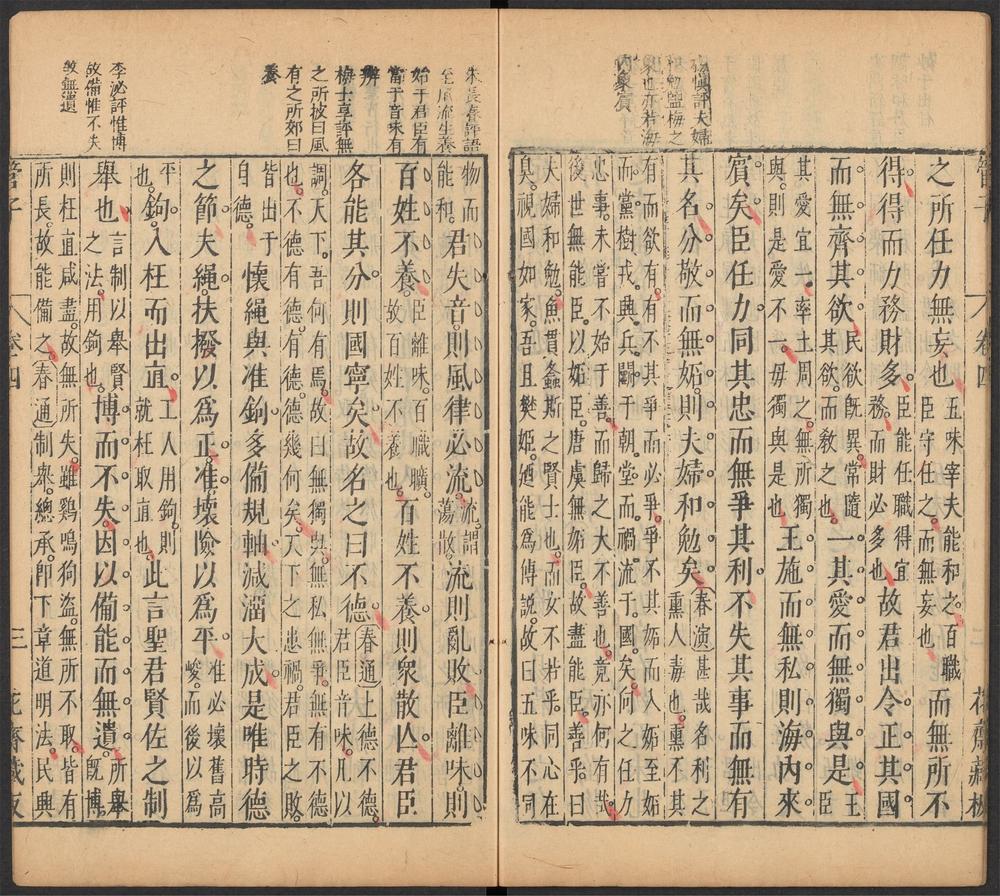 管子
卷四
二
花齋藏板
之所任力無妄也
五味宰夫能和之百職
臣守任之而無妄也
而無所不
得得而力務財多
臣能任職得宜
務而財必多也
故君出令正其國
而無齊其欲
民欲旣異常隨
其欲而敎之也
一其愛而無獨與是
王
臣
其愛宜一率土周之無所獨
與則是愛不一毋獨與是也
王施而無私則海內來
賓矣臣任力同其忠而無爭其利不失其事而無有
其名分敬而無妬則夫婦和勉矣
春演甚哉名利之
熏人毒也熏不其
有而欲有有不其爭而必爭爭不其妬而人妬至妬
而黨樹戎興兵鬭于朝堂而禍流于國矣向之任力
忠事未嘗不始于善而歸之大不善也竟亦何有哉
後世無能臣以妬臣唐虞無妬臣故盡能臣善乎曰
夫婦和勉魚貫螽斯之賢士也而女不平乎同心在
矣視國如家吾且樊姬迺能爲傅說故曰五味不同
慎評夫婦
和勉鹽梅之
味也亦若海
內來賓
物而
能和
君失音則風律必流
流謂
蕩散
流則亂敗臣離味則
百姓不養
臣離味百職曠
故百姓不養也
百姓不養則衆散亾君臣
各能其分則國寧矣故名之曰不德
春通上德不德
君臣音味凡以
調天下吾何有焉故曰無獨與無私無爭無有不德
也不德有德有德德幾何矣天下之患禍君臣之敗
皆出于
自德
懷繩與准鉤多備規軸減溜大成是唯時德
之節夫繩扶撥以爲正准壞險以爲平
准必壞舊高
峻而後以爲
平
也
鉤入枉而出直
工人用鉤則
就枉取直也
此言聖君賢佐之制
舉也
言制以舉賢
之法用鉤也
博而不失因以備能而無遺
所舉
旣博
則枉直咸盡故無所失雖鷄鳴狗盜無所不取皆有
所長故能備之
春通制衆總承卽下章道明法民興
管子
卷四
三
花齋藏板
朱長春評語
至風流生養
始于君臣有
當于音味有
辨
梅士享評無
之所披曰風
有之所郊曰
養
李泌評惟博
故備惟不失
故無遺